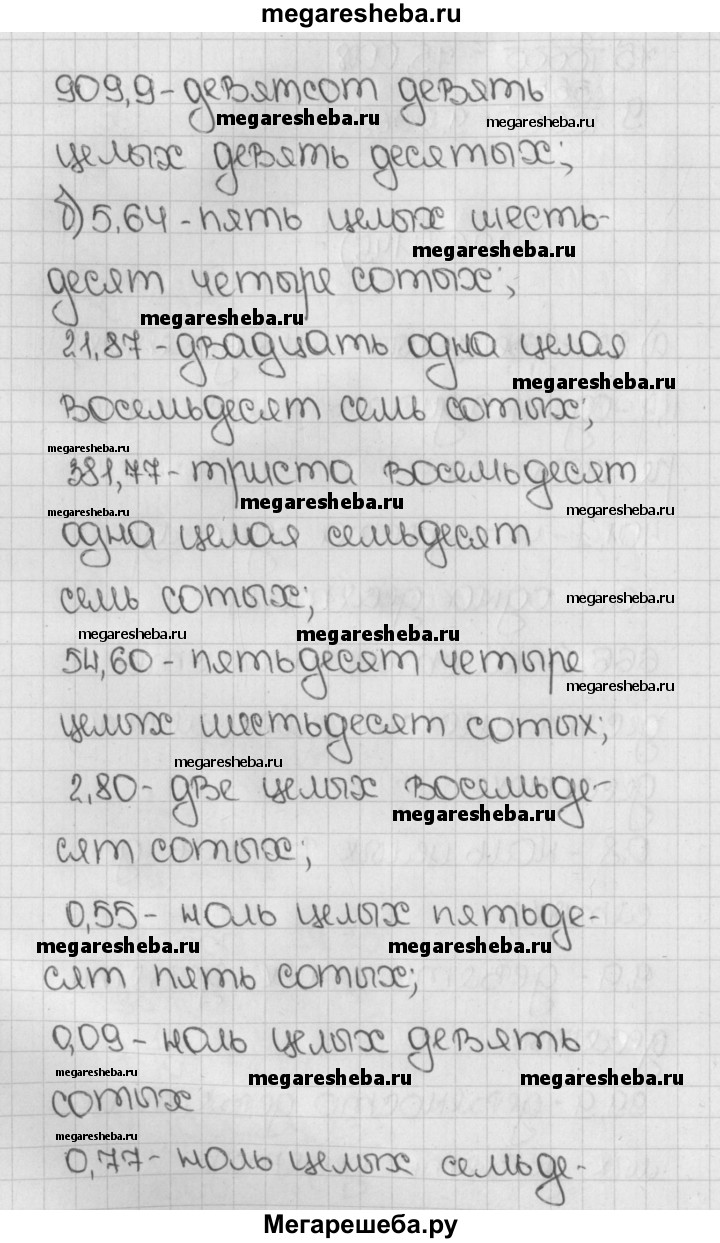 megaresheba.ru
909,9 - девятсот девять
megaresheba.ru megaresheba.ru
целых девять десятых;
б) 5,64 - пять целых шесть-
megaresheba.ru
десят четыре сотых;
megaresheba.ru
21,87 - двадцать одна целая
megaresheba.ru
восемьдесят семь сотых;
megaresheba.ru
381,77 - триста восемьдесят
megaresheba.ru megaresheba.ru megaresheba.ru
одна целая семьдесят
семь сотых; megaresheba.ru
megaresheba.ru megaresheba.ru
54,60 - пятьдесят четыре
megaresheba.ru
целых шестьдесят сотых;
megaresheba.ru
2,80 - две целых восемьде-
megaresheba.ru
сят сотых;
0,55 - ноль целых пятьде-
megaresheba.ru megaresheba.ru
сят пять сотых;
0,09 - ноль целых девять
megaresheba.ru megaresheba.ru megaresheba.ru
сотых
megaresheba.ru
0,77 - ноль целых семьде-
Мегарешеба.ру